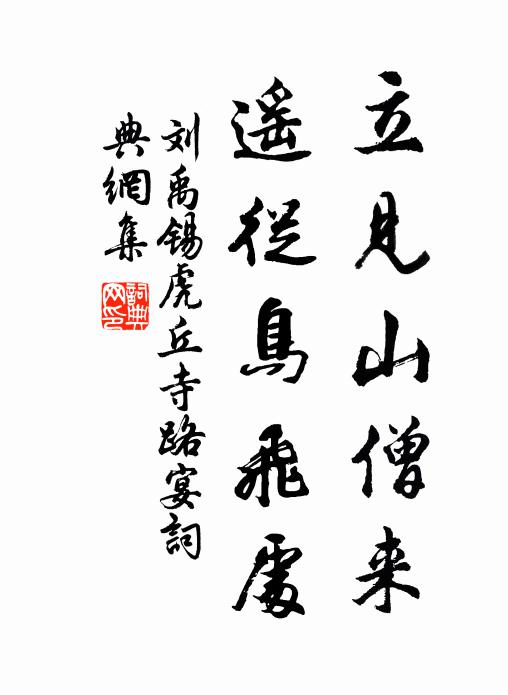 立见山僧来
遥從鳥飛處
刘禹锡虎丘寺路宴詞
典網集
詞典
网印